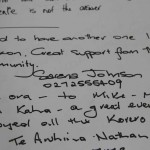 is not the answer
d to have another one
son, Great Support from t
mmunity.
Serena Johnson
0272556409
ora - to Mike - M
Kaha - a great eve
oyed all the Korero
Te Andrina Nathan